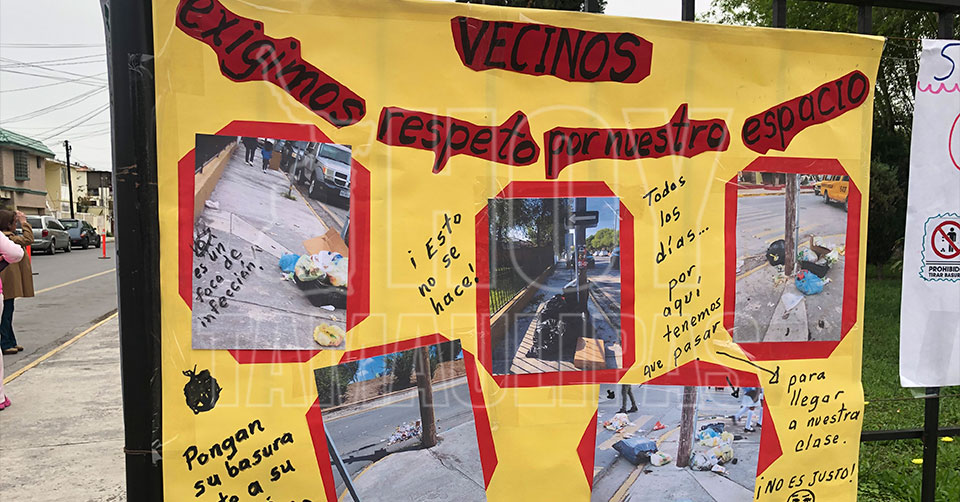 VECINOS
exigimos
respeto por nuestro espacio
Es
un
foco de
infección
¡Esto
no se
hace!
Todos
los
días...
por
aquí
tenemos
que pasar
para
llegar
a nuestra
clase.
¡NO ES JUSTO!
Pongan
su basura
a su
PROHIBIDO
TIRAR BASURA
HOY
TAMAULIPAS